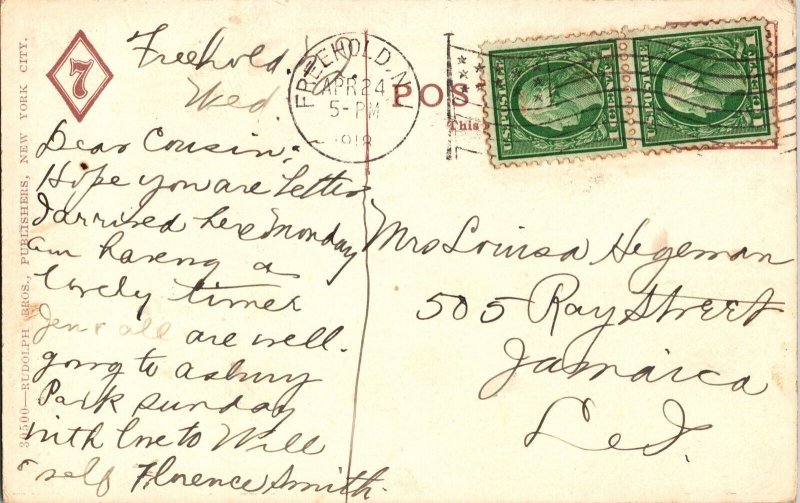 7
30500—RUDOLPH BROS., PUBLISHERS, NEW YORK CITY.
Freehold.
Wed
Dear Cousin:
Hope you are better
I arrived here Monday
am having a
lovely time
Jen & all are well.
going to asbury
Park sunday
with love to Will
& self Florence Smith.
FREEHOLD, N.J.
APR 24
5-PM
1918
POS
This
U.S. POSTAGE
1 CENT 1
U.S. POSTAGE
1 CENT 1
Mrs Louisa Hegeman
505 Ray Street
Jamaica
L. I.